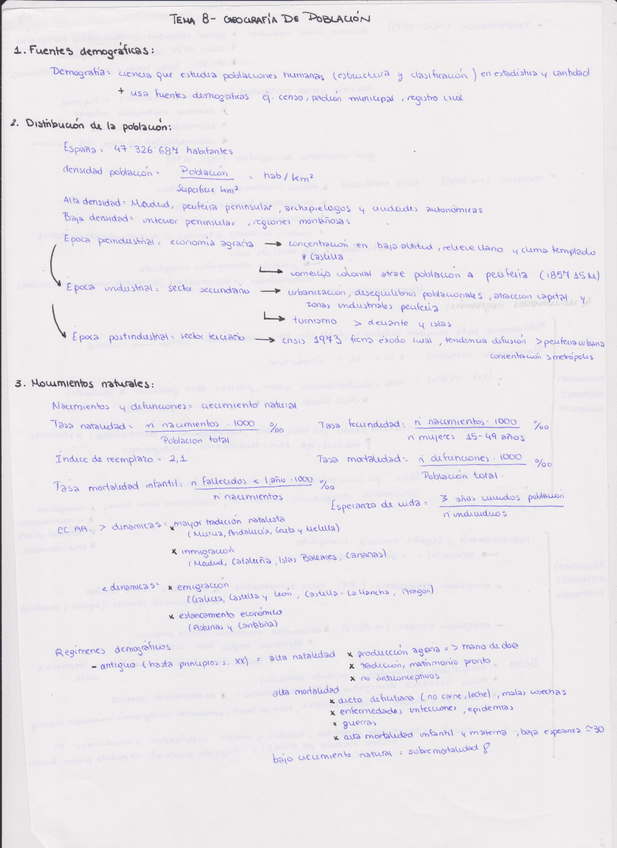 TEMA 8- GEOGRAFÍA DE POBLACIÓN
1. Fuentes demográficas:
Demografía= ciencia que estudia poblaciones humanas (estructura y clasificación) en estadística y cantidad
+ usa fuentes demográficas censo, padrón municipal, registro civil
2. Distribución de la población:
España= 47.326.687 habitantes
densidad población= Población / Superficie km² = hab/km²
Alta densidad= Madrid, periferia peninsular, archipiélagos y ciudades autonómicas
Baja densidad= interior peninsular, regiones montañosas
Época preindustrial= economía agraria → concentración en baja altitud, relieve llano y clima templado
* Castilla
↳ comercio colonial atrae población a periferia (1857 15M)
Época industrial= sector secundario → urbanización, desequilibrio poblacionales, atracción capital y
zonas industriales periferia
↳ turismo > levante y islas
Época postindustrial= sector terciario → crisis 1973 frena éxodo rural, tendencia difusión > periferia urbana
concentración > metrópolis
3. Movimientos naturales:
Nacimientos y defunciones= crecimiento natural
Tasa natalidad= n nacimientos · 1000 / Población total ‰
Tasa fecundidad= n nacimientos · 1000 / n mujeres 15-49 años ‰
Índice de reemplazo = 2,1
Tasa mortalidad= n defunciones · 1000 / Población total ‰
Tasa mortalidad infantil= n fallecidos < 1 año · 1000 / n nacimientos ‰
Esperanza de vida= años vividos población / n individuos
CC.AA > dinámicas= × mayor tradición natalista
(Murcia, Andalucía, Ceuta y Melilla)
× inmigración
(Madrid, Cataluña, Islas Baleares, Canarias)
< dinámicas= × emigración
(Galicia, Castilla y León, Castilla-La Mancha, Aragón)
× estancamiento económico
(Asturias y Cantabria)
Regímenes demográficos
- antiguo (hasta principios s. XX) = alta natalidad × producción agraria => mano de obra
× tradición, matrimonio pronto
× no anticonceptivos
alta mortalidad
× dieta deficitaria (no carne, leche), malas cosechas
× enfermedades infecciones, epidemias
× guerras
× alta mortalidad infantil y materna, baja esperanza ≃30
bajo crecimiento natural = sobremortalidad